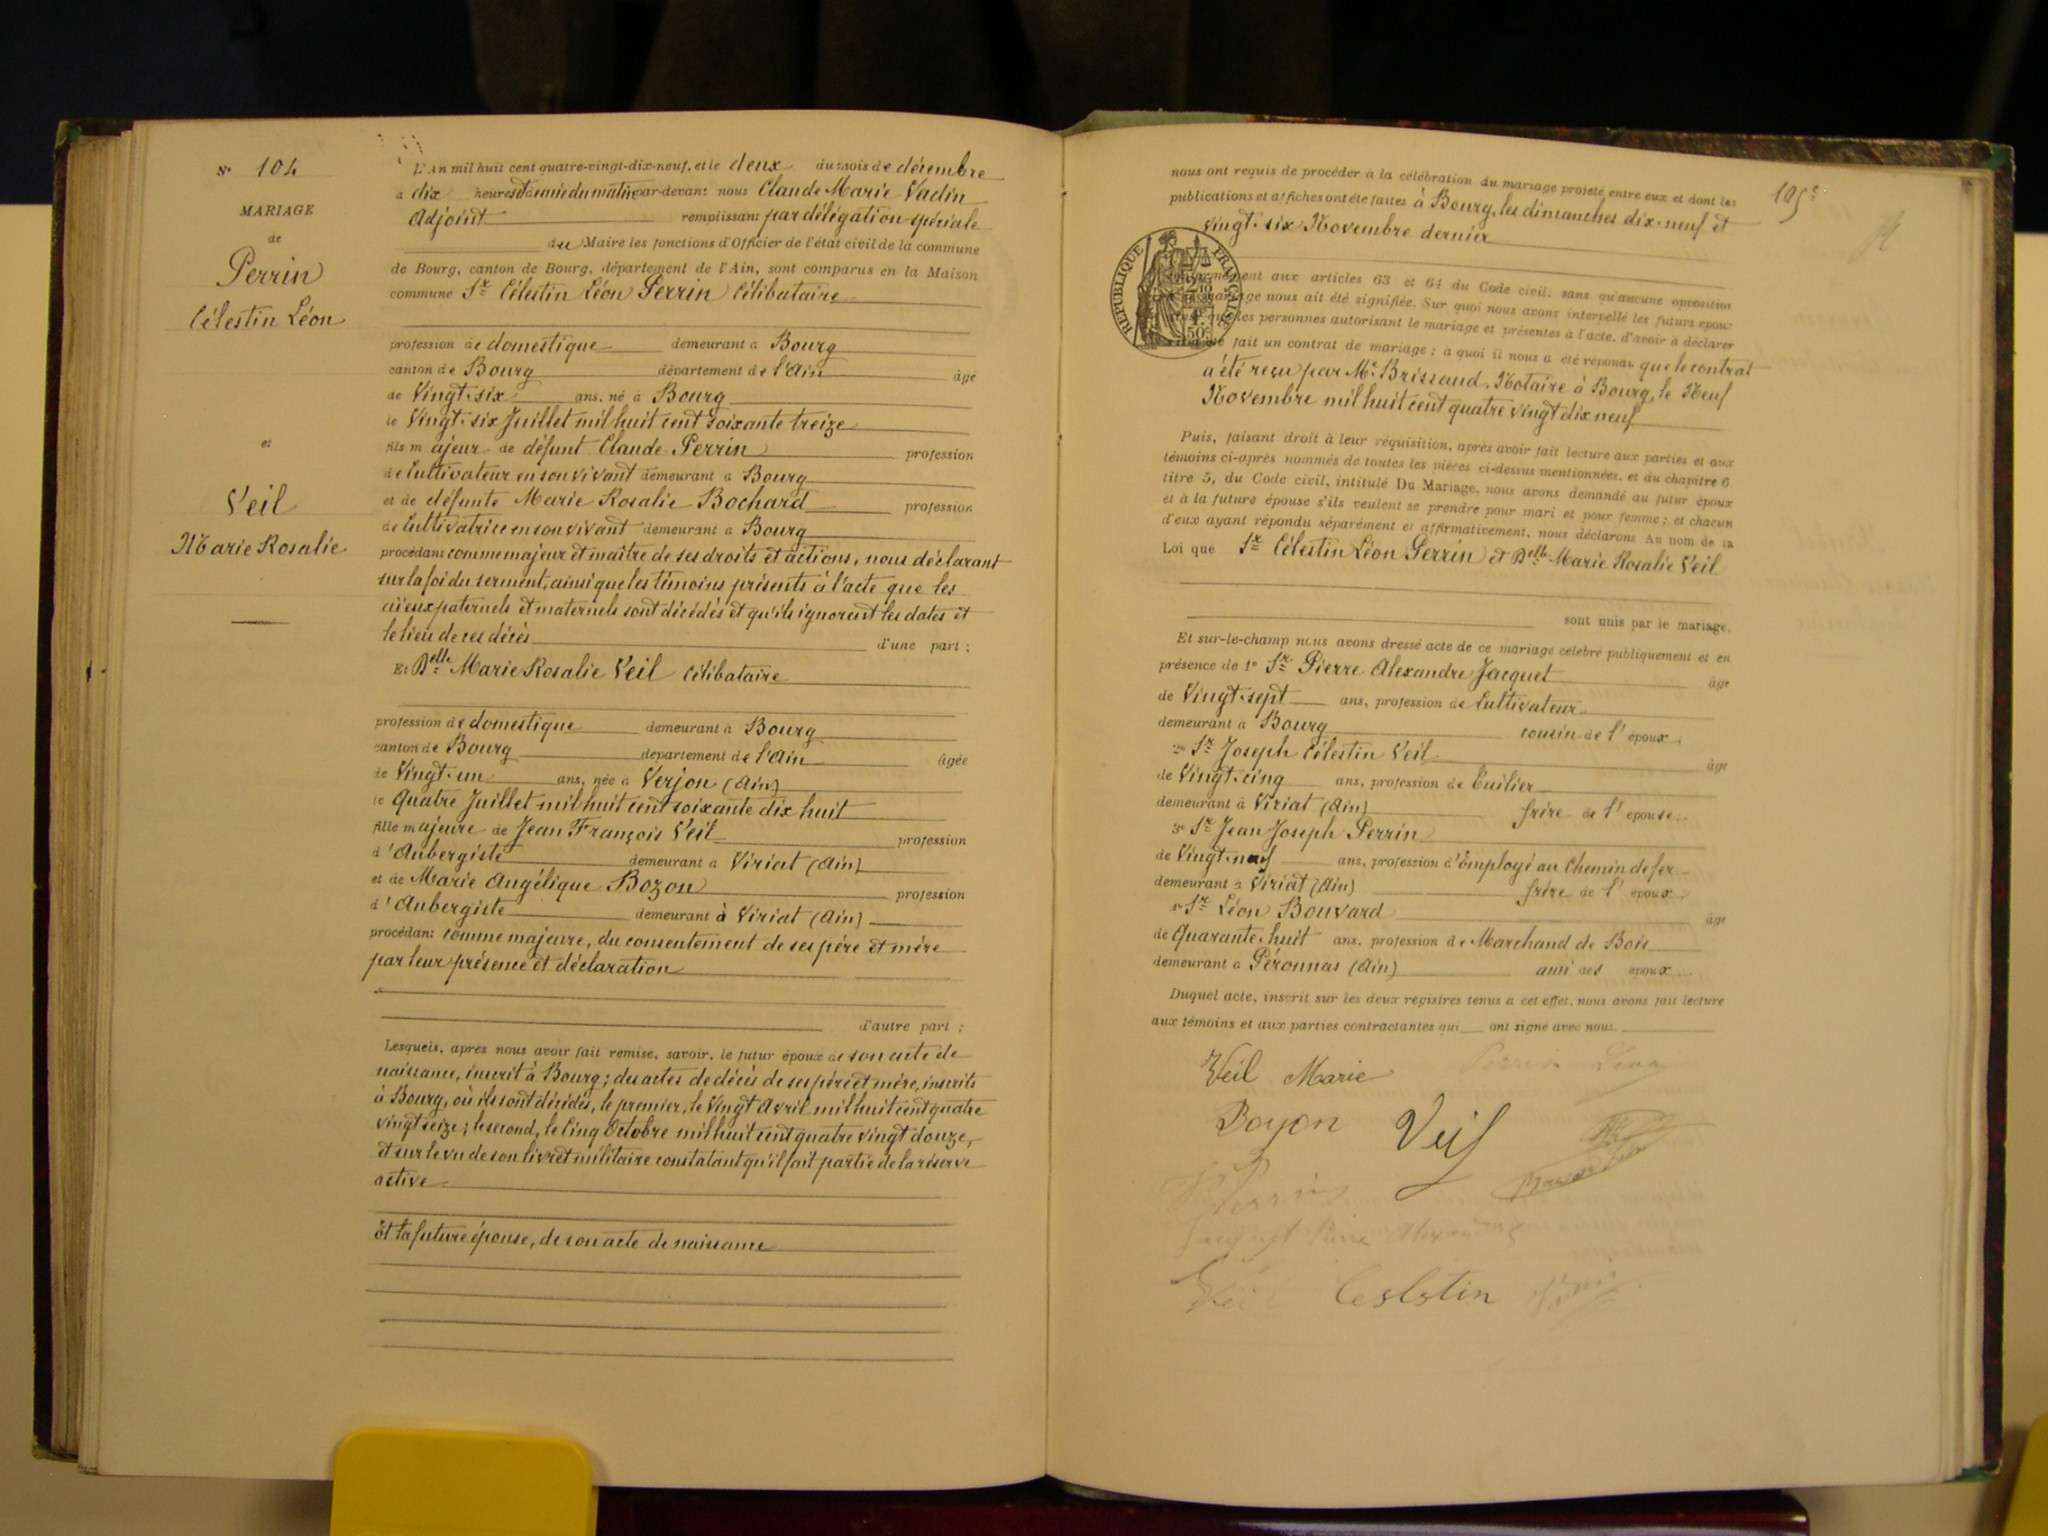 N° 104
MARIAGE
de
Perrin
Célestin Léon
et
Veil
Marie Rosalie
L'An mil huit cent quatre-vingt-dix-neuf, et le deux du mois de décembre
à dix heures du matin par-devant nous Claude Marie Vadin
Adjoint remplissant par délégation spéciale
du Maire les fonctions d'Officier de l'état civil de la commune
de Bourg, canton de Bourg, département de l'Ain, sont comparus en la Maison
commune Sr Célestin Léon Perrin Célibataire
profession de domestique demeurant à Bourg
canton de Bourg département de l'Ain âgé
de Vingt-six ans, né à Bourg
le Vingt-six Juillet mil huit cent soixante treize
fils majeur de défunt Claude Perrin profession
de Cultivateur en son vivant demeurant à Bourg
et de défunte Marie Rosalie Bochard profession
de Cultivatrice en son vivant demeurant à Bourg
procédant comme majeur et maître de ses droits et actions, nous déclarant
sur la foi du serment, ainsi que les témoins présents à l'acte que les
aïeux paternels et maternels sont décédés et qu'ils ignorent les dates et
le lieu de ces décès d'une part ;
Et Delle Marie Rosalie Veil Célibataire
profession de domestique demeurant à Bourg
canton de Bourg département de l'Ain âgée
de Vingt-un ans, née à Verjon (Ain)
le Quatre Juillet mil huit cent soixante dix huit
fille majeure de Jean François Veil profession
d'Aubergiste demeurant à Viriat (Ain)
et de Marie Angélique Bozon profession
d'Aubergiste demeurant à Viriat (Ain)
procédant comme majeure, du consentement de ses père et mère
par leur présence et déclaration
d'autre part ;
Lesquels, après nous avoir fait remise, savoir, le futur époux de son acte de
naissance, inscrit à Bourg ; des actes de décès de ses père et mère, inscrits
à Bourg, où ils sont décédés, le premier, le Vingt Avril mil huit cent quatre
vingt seize ; le second, le Cinq Octobre mil huit cent quatre vingt douze,
et sur le vu de son livret militaire constatant qu'il fait partie de la réserve
active
Et la future épouse, de son acte de naissance
105
nous ont requis de procéder à la célébration du mariage projeté entre eux et dont les
publications et affiches ont été faites à Bourg, les dimanches dix-neuf et
vingt-six Novembre dernier
RÉPUBLIQUE FRANÇAISE
conformément aux articles 63 et 64 du Code civil, sans qu'aucune opposition
mariage nous ait été signifiée. Sur quoi nous avons interpellé les futurs époux
que les personnes autorisant le mariage et présentes à l'acte, d'avoir à déclarer
fait un contrat de mariage ; à quoi il nous a été répondu que le contrat
a été reçu par Me Brissaud, Notaire à Bourg, le Neuf
Novembre mil huit cent quatre vingt dix neuf
Puis, faisant droit à leur réquisition, après avoir fait lecture aux parties et aux
témoins ci-après nommés de toutes les pièces ci-dessus mentionnées, et du chapitre 6
titre 5, du Code civil, intitulé Du Mariage, nous avons demandé au futur époux
et à la future épouse s'ils veulent se prendre pour mari et pour femme ; et chacun
d'eux ayant répondu séparément et affirmativement, nous déclarons Au nom de la
Loi que Sr Célestin Léon Perrin et Delle Marie Rosalie Veil
sont unis par le mariage.
Et sur-le-champ nous avons dressé acte de ce mariage célébré publiquement et en
présence de 1° Sr Pierre Alexandre Jacquet âgé
de Vingt-sept ans, profession de Cultivateur
demeurant à Bourg cousin de l'époux ;
2° Sr Joseph Célestin Veil âgé
de Vingt-cinq ans, profession de Tuilier
demeurant à Viriat (Ain) frère de l'épouse
3° Sr Jean Joseph Perrin
de Vingt-neuf ans, profession d'Employé au Chemin de fer
demeurant à Viriat (Ain) frère de l'époux
4° Sr Léon Bouvard âgé
de Quarante-huit ans, profession de Marchand de Bois
demeurant à Péronnas (Ain) ami des époux
Duquel acte, inscrit sur les deux registres tenus à cet effet, nous avons fait lecture
aux témoins et aux parties contractantes qui ont signé avec nous.
Veil Marie Perrin Léon
Bozon Veil
Perrin
Jacquet Pierre Alexandre
Veil Celestin